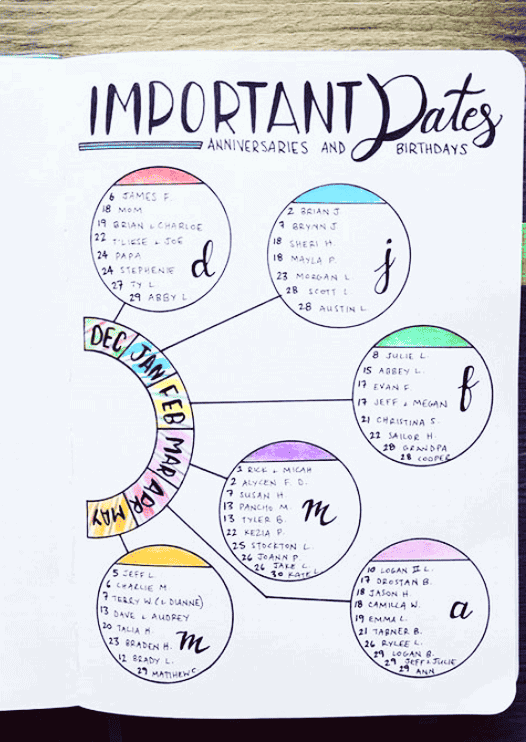 IMPORTANT Dates
ANNIVERSARIES AND BIRTHDAYS
6 JAMES F.
18 MOM
19 BRIAN + CHARLOE
22 T'LIESE + JOE
24 PAPA
24 STEPHENIE
27 TY L.
29 ABBY L
d
2 BRIAN J
7 BRYNN J
18 SHERI H.
18 MAYLA P.
23 MORGAN L
28 SCOTT L
28 AUSTIN L.
j
DEC
JAN
FEB
MAR
APR
MAY
8 JULIE L.
15 ABBEY L.
17 EVAN F.
17 JEFF + MEGAN
21 CHRISTINA S.
22 SAILOR H.
28 GRANDPA
28 COOPER
f
2 ALYCEN F. D.
7 SUSAN H.
13 PANCHO M.
13 TYLER B.
22 KEZIA P.
25 STOCKTON L.
26 JOANN P.
26 JAKE L
30 KATE L
m
RICK + MICAH
5 JEFF L.
6 CHARLIE M.
7 TERRY W (& DUNNE)
13 DAVE + AUDREY
20 TALIA H.
23 BRADEN H.
12 BRADY L.
29 MATTHEW C
m
10 LOGAN L.
17 DROSTAN B.
18 JASON H.
18 CAMILLA W.
19 EMMA L.
21 TABNER B.
26 RYLEE L.
29 LOGAN B.
29 JEFF + JULIE
29 ANN
a